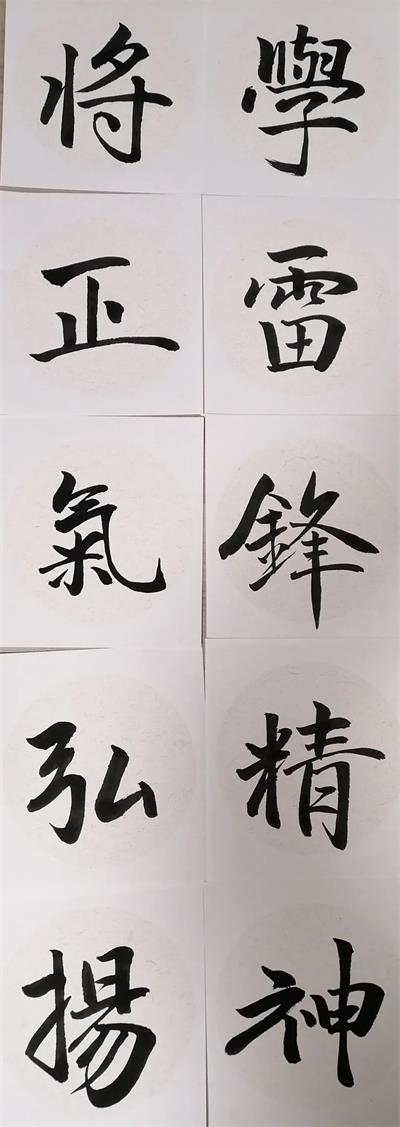 學雷鋒精神
将正氣弘揚